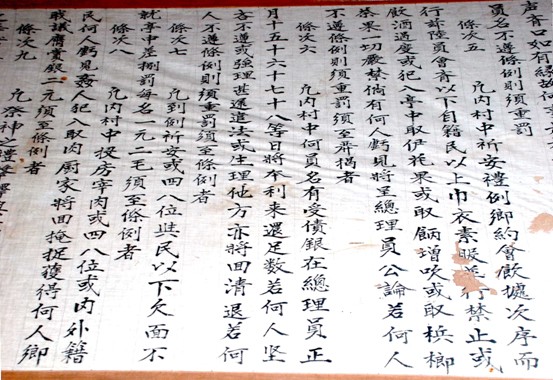 員名不遵條例則須重罰
條次五　凡內村中祈安禮例鄉約會廠據次序而
行旅陸員會斉以下自籍民以上巾衣素服並行禁止或
飲酒過度或犯入亭中取伊花果或取餉增吹或取梹榔
茶果一切嚴禁倘有何人虧見將至總理員公論若何人
不遵條例則須重罰須至屏揭者
條次六　凡內村中何員名有受債銀在總理員正
月十五十六十七十八等日將本利来還足數若何人坚
吝不遵或強理甚乖道法或生理他方亦將回清退若何
人不遵條例則須重罰須至條例者
條次七　凡到例祈安或四八位与民以下欠面不
就亭中差捌罰每名一元二毛須至條例者
條次八　凡內村中投房宰肉或四八位或內外籍
民何人虧見姦人犯入取肉厨家將回掩捉獲得何人鄉
二元須至條例者
條次九　凡祭神之禮